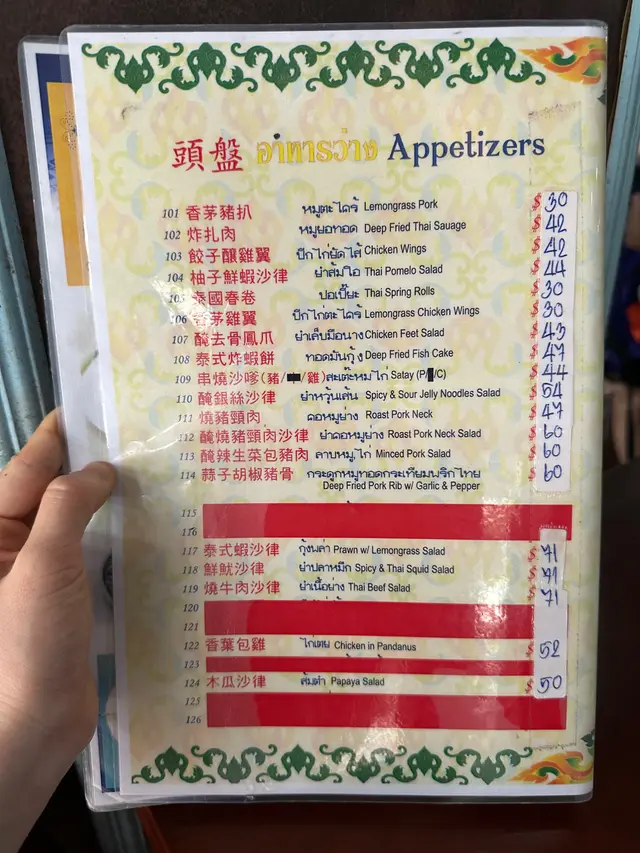 頭盤 อาหารว่าง Appetizers
101 香茅豬扒 หมูตะไคร้ Lemongrass Pork $30
102 炸扎肉 หมูยอทอด Deep Fried Thai Sauage $42
103 餃子釀雞翼 ปีกไก่ยัดไส้ Chicken Wings $42
104 柚子鮮蝦沙律 ยำส้มโอ Thai Pomelo Salad $44
105 泰國春卷 ปอเปี๊ยะ Thai Spring Rolls $30
106 香茅雞翼 ปีกไก่ตะไคร้ Lemongrass Chicken Wings $30
107 醃去骨鳳爪 ยำเล็บมือนาง Chicken Feet Salad $43
108 泰式炸蝦餅 ทอดมันกุ้ง Deep Fried Fish Cake $47
109 串燒沙嗲(豬/ /雞) สะเต๊ะหมูไก่ Satay (P/ /C) $44
110 醃銀絲沙律 ยำหวุ้นเส้น Spicy & Sour Jelly Noodles Salad $54
111 燒豬頸肉 คอหมูย่าง Roast Pork Neck $47
112 醃燒豬頸肉沙律 ยำคอหมูย่าง Roast Pork Neck Salad $60
113 醃辣生菜包豬肉 ลาบหมู/ไก่ Minced Pork Salad $60
114 蒜子胡椒豬骨 กระดูกหมูทอดกระเทียมพริกไทย $60
Deep Fried Pork Rib w/ Garlic & Pepper
115
116
117 泰式蝦沙律 กุ้งพล่า Prawn w/ Lemongrass Salad $71
118 鮮魷沙律 ยำปลาหมึก Spicy & Thai Squid Salad $71
119 燒牛肉沙律 ยำเนื้อย่าง Thai Beef Salad 71
120
121
122 香葉包雞 ไก่เตย Chicken in Pandanus $52
123
124 木瓜沙律 ส้มตำ Papaya Salad $50
125
126